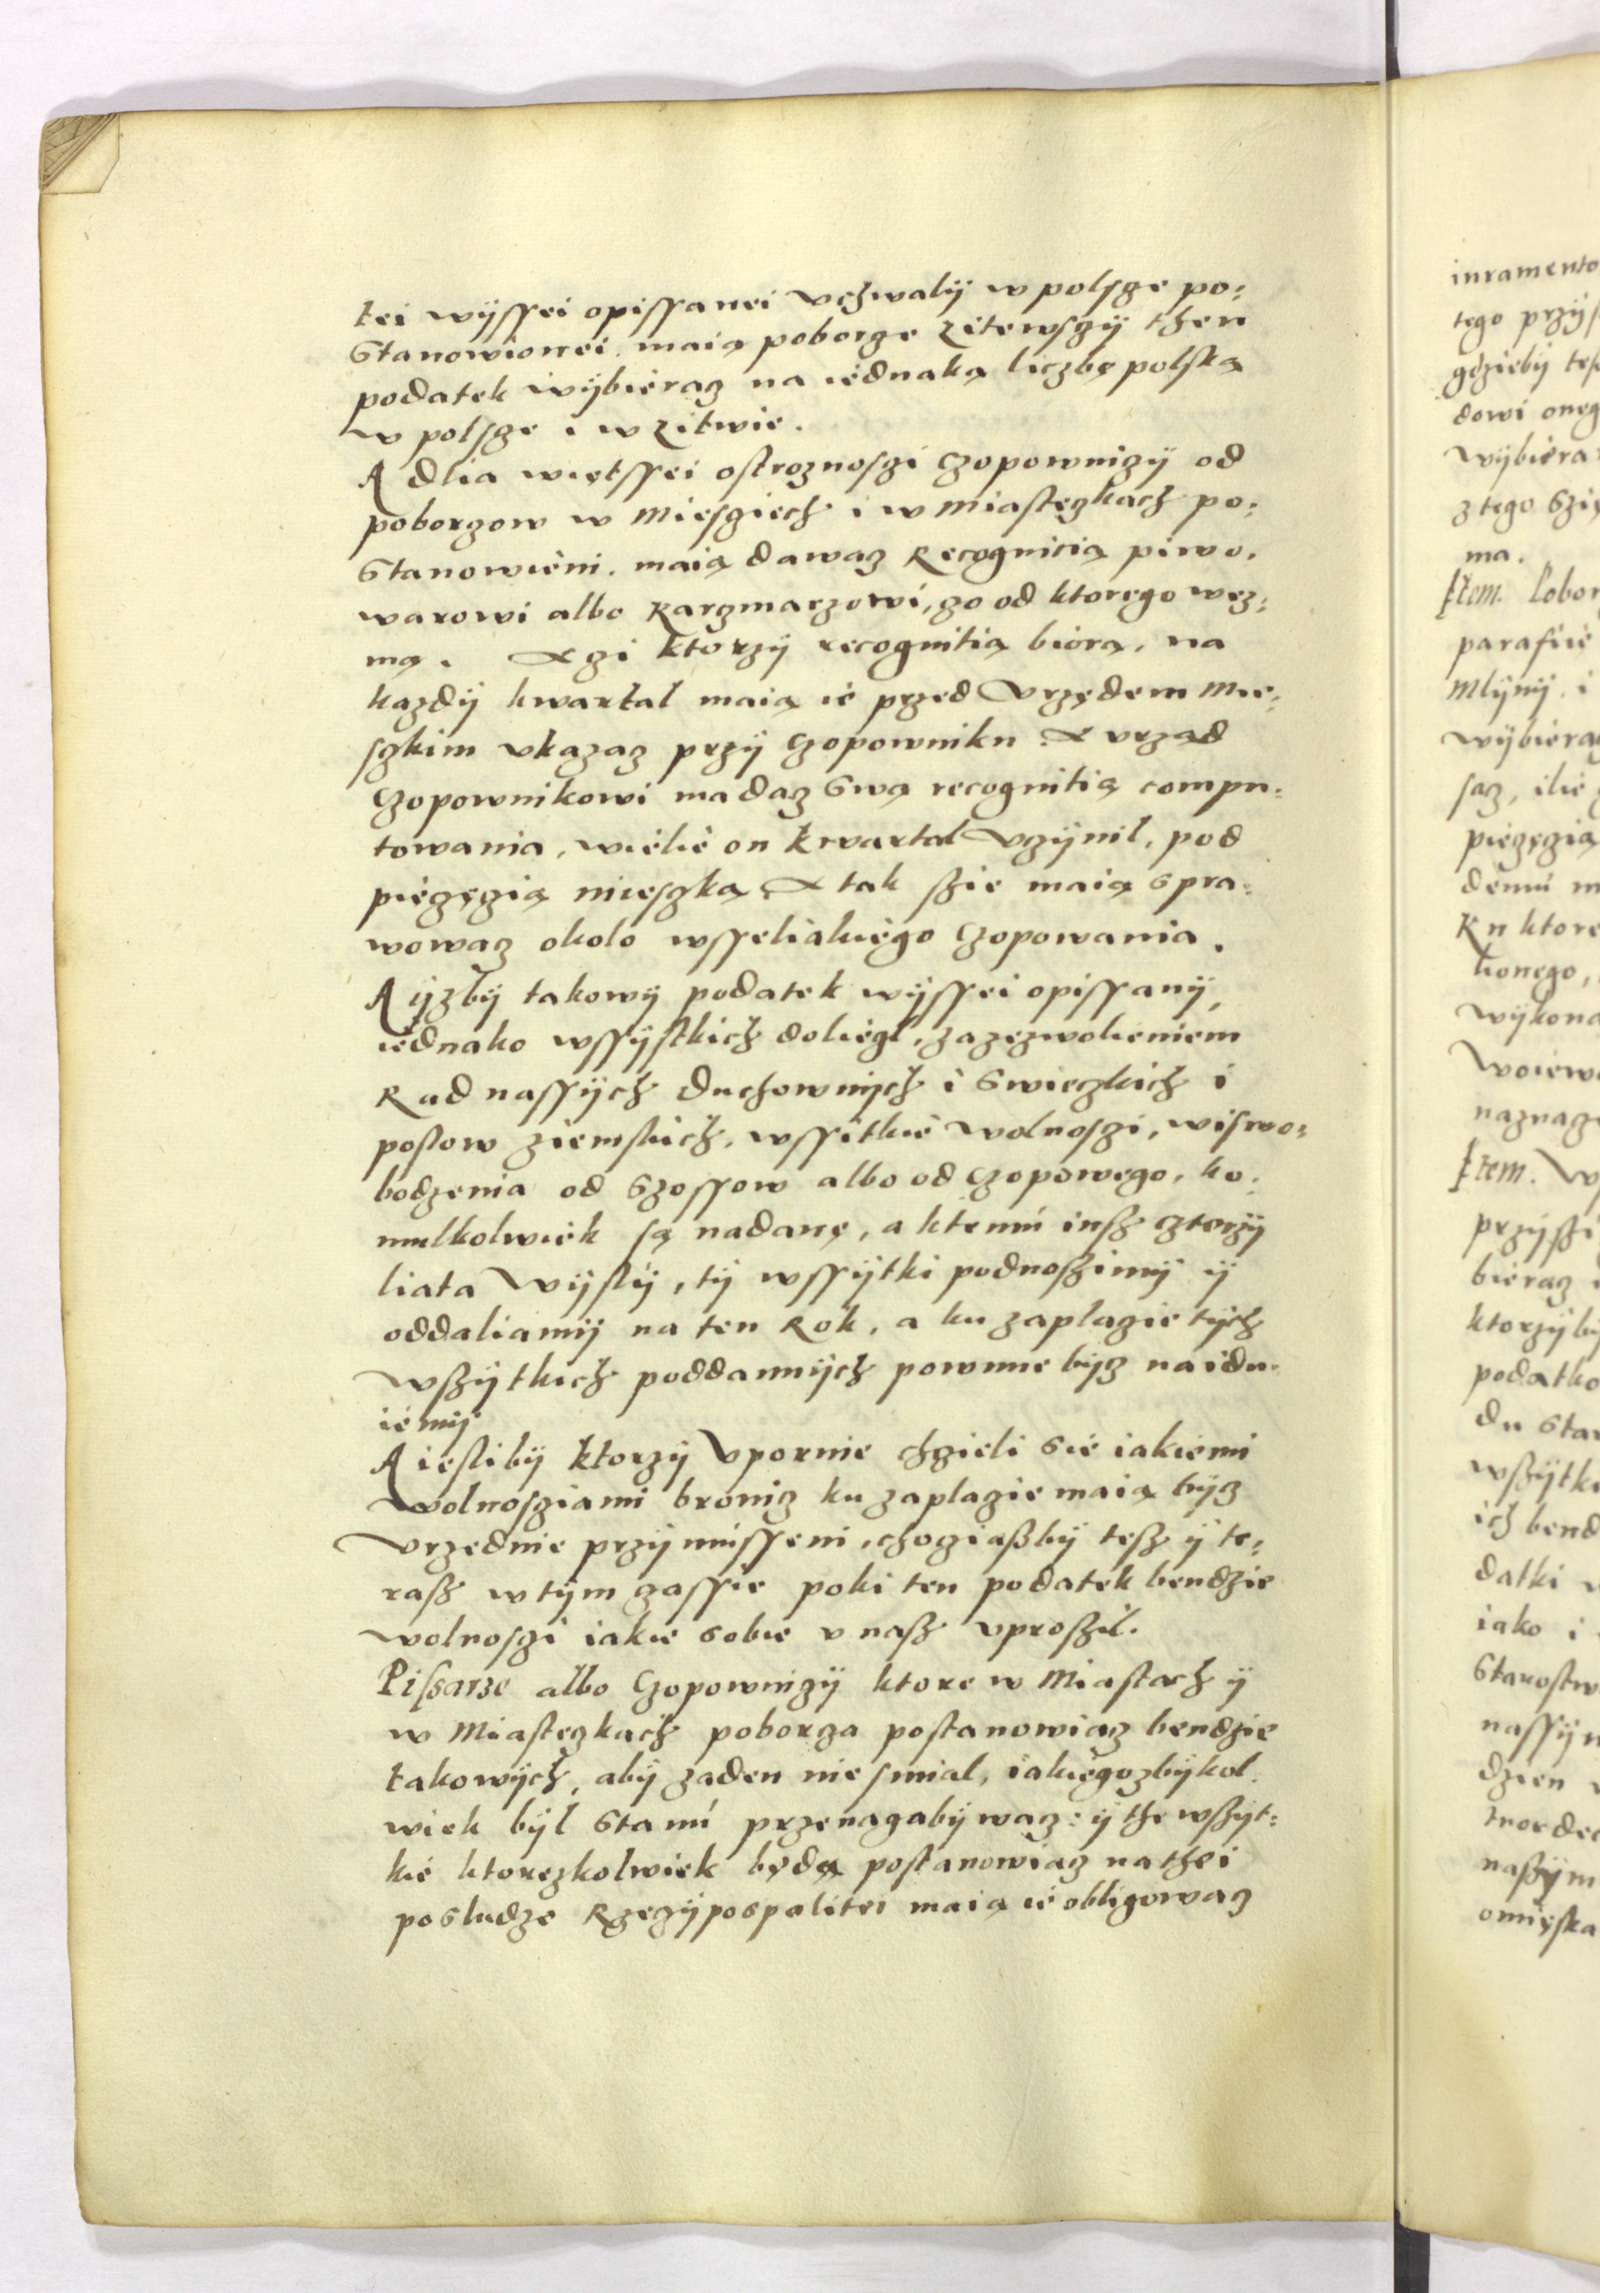 tei wÿssei opissanei vchwalÿ w polsge po:
Stanowionei. maią poborge Litewsgÿ then
podatek wÿbierag na iednaką liczbę polską
w polsge i w Litwie.
A dlia więtssei ostroznosgi czopownigÿ od
poborgow w Miesgiech i w Miastęgkach po:
Stanowieni. maią dawag Recognicią piwo.
warowi albo Kargmargowi, go od ktorego weg:
mą. A gi ktorgÿ recognitią biorą, na
kazdÿ kwartal maią ie przed Vrzędem Mie:
sgkim vkagag przÿ czopowniku. A vrgąd
czopownikowi ma dag Swą recognitią compu:
towania, wielie on kwartal Vgÿnil, pod
piegęgią miesgką A tak szie maią spra:
wowag okolo wsseliakiego czopowania.
A ÿzbÿ takowÿ podatek wÿssei opissanÿ,
iednako wssÿstkich doliegl, za zezwolieniem
Rad nassÿch Duchownÿch i Swieczkich i
poslow ziemskich, wssitkie wolnosgi, wiswo:
bodzenia od Szossow albo od czopowego, ko:
mulkolwiek są nadanę, a ktemú insz czterzÿ
liata Wÿslÿ, tÿ wssÿtki podnoszimÿ ÿ
oddaliamÿ na ten Rok, a ku zaplagie tÿch
wszÿtkich poddannÿch powinne bÿg naidu:
iemÿ
A iesliby ktorzÿ Vpornie chgieli sie iakiemi
Wolnosgiami bronig ku zaplagie maią bÿg
Vrzednie przÿmússeni, chogiaszbÿ tesz ÿ te:
rasz w tÿm gassie poki ten podatek bendzie
wolnosgi iakie sobie v nasz vproszil.
Pissarze albo Czopownigÿ ktore w Miastach ÿ
w Miastęgkach poborga postanowiag bendzie
takowÿch, abÿ zaden nie smial, iakiegozbÿkol.
wiek bÿl Stanú przenagabÿwag: ÿ the wszÿt:
kie ktoregkolwiek będą postanowiag na thei
posludze Rgegÿpospolitei maią ie obligowag
inramento
tego przÿs
gdziebÿ tes
dowi oneg
Wÿbiera
z tego Szię
ma.
Item. Pobor
parafiie
Mlÿnÿ. i
wÿbierag
sag, ilie
piegęgią
demú m
Ku ktore
lionego,
Wÿkona
Woiewo
naznag
Item. W
przÿszi
bierag
ktorzÿbÿ
podatko
du Star
wszÿtki
ich bend
datki w
iako i
Starostw
nassÿm
dzien
naszÿm
omięska